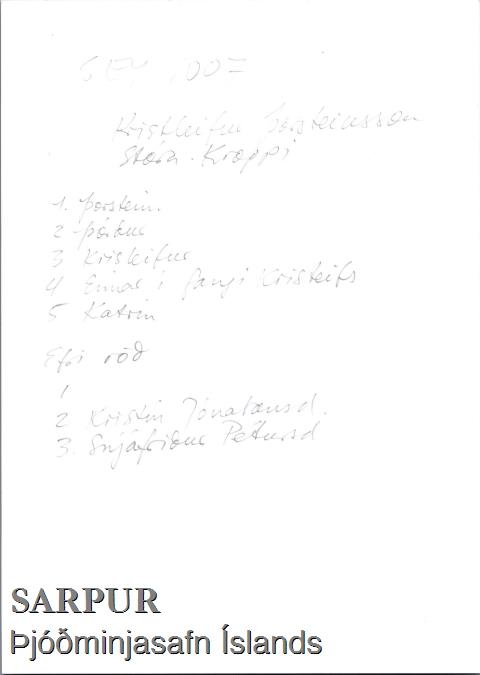 Kristleifur Þorsteinsson
Stóra-Kroppi
1. Þorstein.
2 Þórður
3 Kristleifur
4 Einar í fangi Kristleifs
5 Katrín
Efri röð
1
2 Kristín Jónatansd.
3. Snjáfríður Pétursd
SARPUR
Þjóðminjasafn Íslands